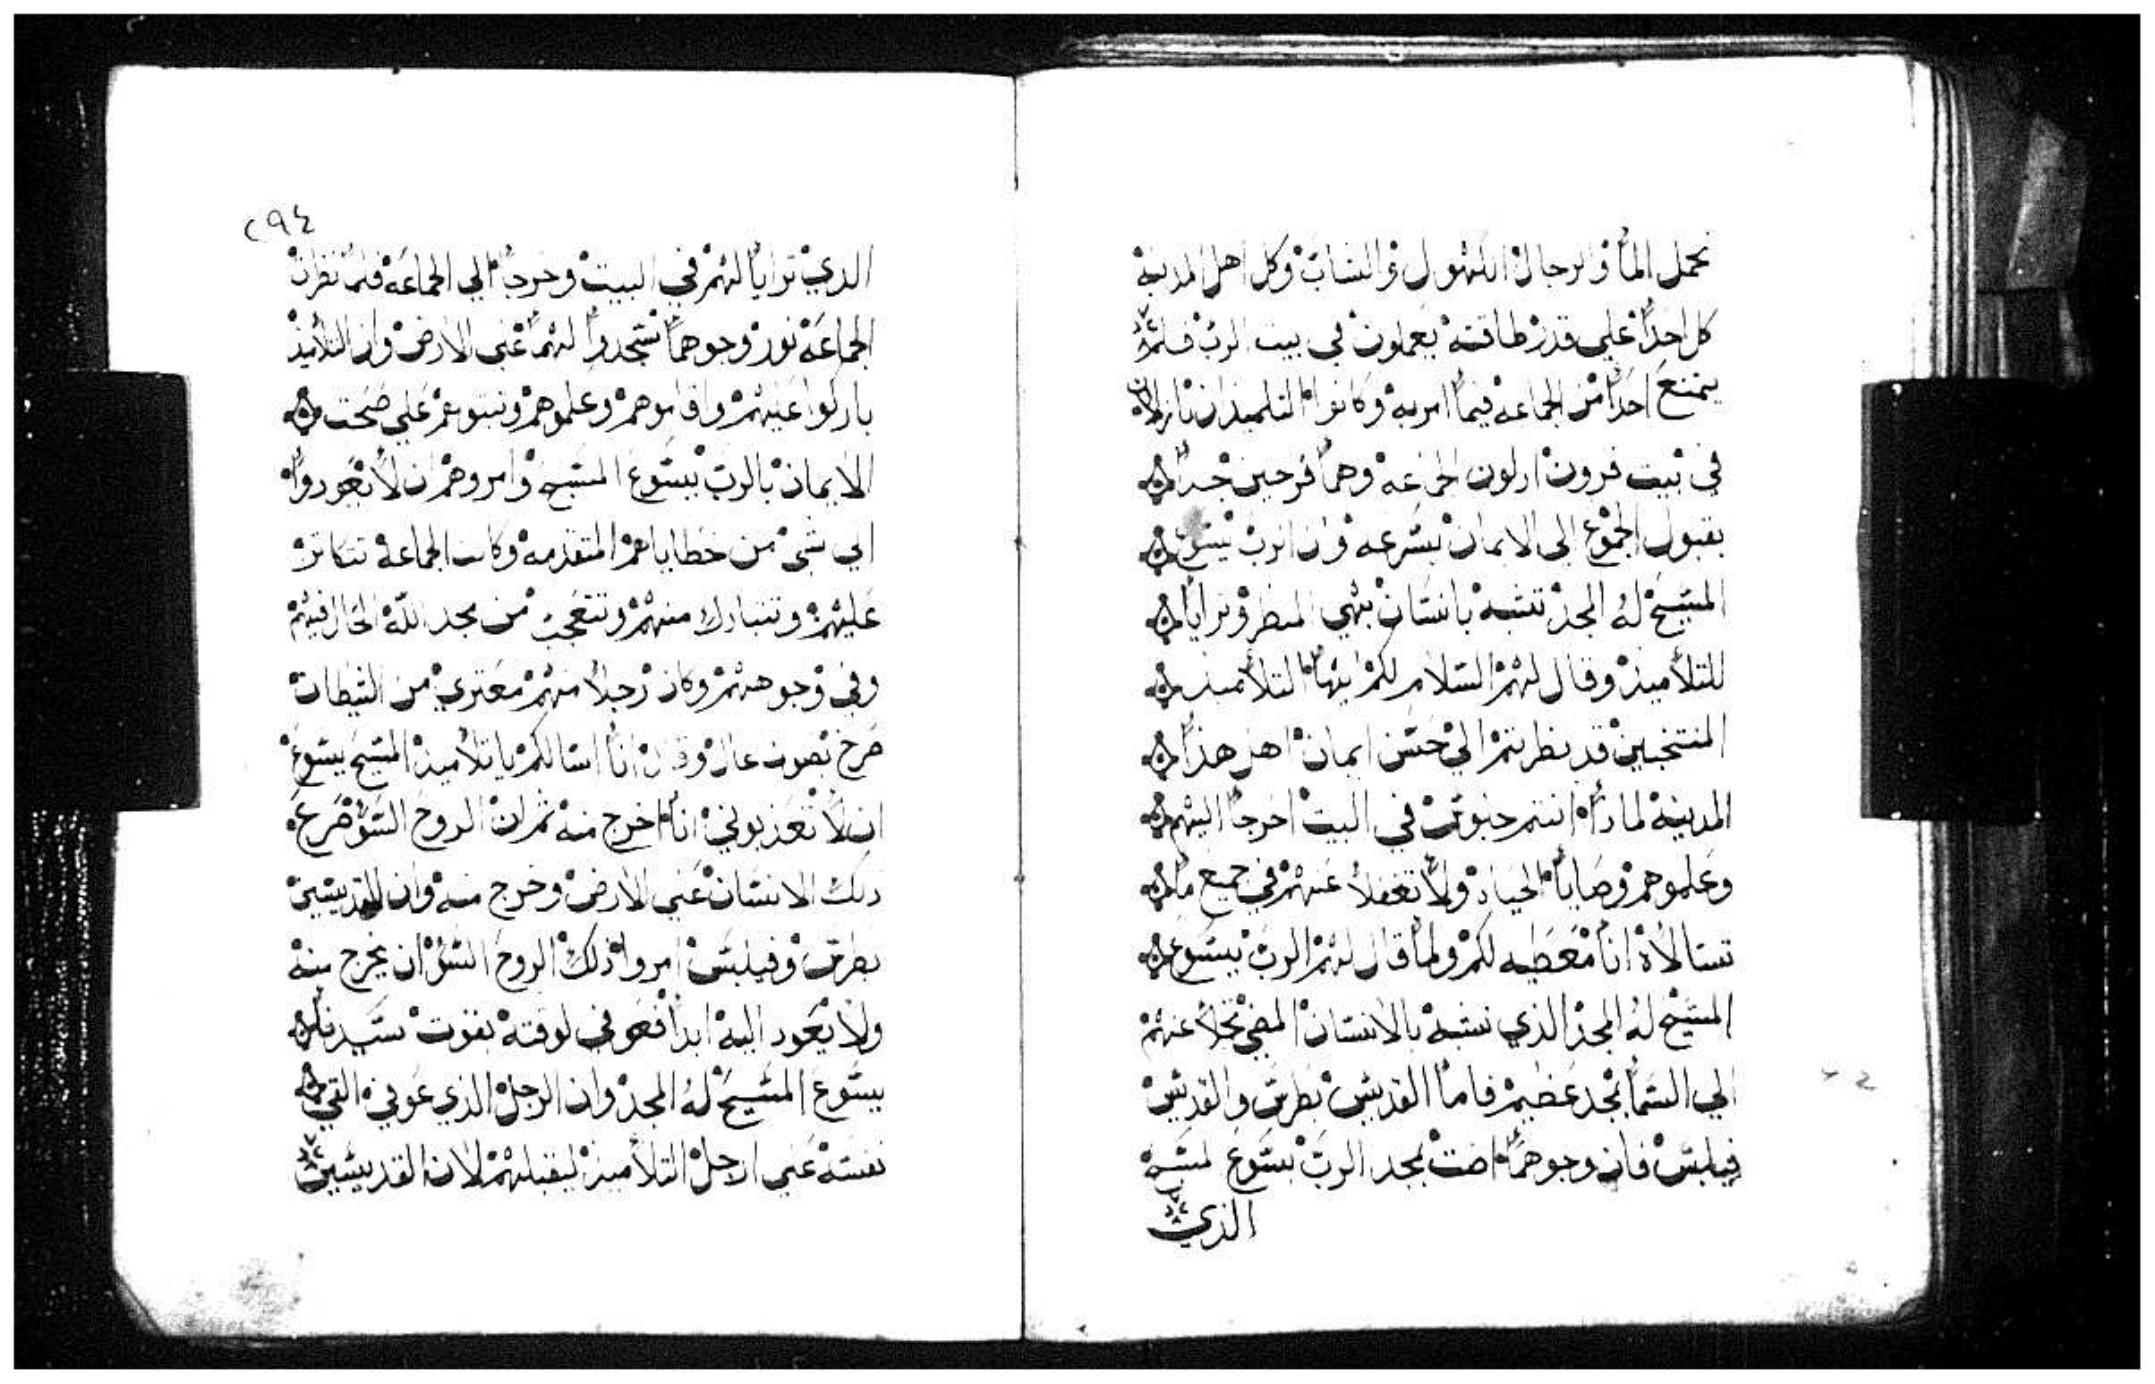 تحمل الما والرجال الكهول والشباب وكل اهل المدينه
كل احداً علي قدر طاقته يعملون في بيت الرب فلم
يمتنع احداً من الجماعه فيما امر به وكانوا التلميذان نازلان
في بيت فرون اركون الجماعه وهما فرحين جداً
بقبول الجموع الي الايمان بسرعه وان الرب يسوع
المسيح له المجد تشبه بانسان بهي المنظر وترايا
للتلاميذ وقال لهم السلام لكم ايها التلاميذ
المنتخبين قد نظرتم الي حسن ايمان اهل هذا
المدينه لماذا انتم جلوس في البيت اخرجا اليهم
وعلموهم وصايا الحياه ولا تغفلا عنهم في جميع ما
تسالاه انا معطيه لكم ولما قال لهم الرب يسوع
المسيح له المجد الذي تشبه بالانسان المضي تخلا عنهم
الي السما بمجد عضيم فاما القديس بطرس والقديس
فيلبس فان وجوهما اضت بمجد الرب يسوع المسيح
الذي
٢٩٤
الدي ترايا لهم في البيت وخرجا الي الجماعه فلما نظران
الجماعه نور وجوهما سجدوا لهما علي الارض وان التلاميذ
باركوا عليهم واقاموهم وعلموهم وثبتوهم علي صحت
الايمان بالرب يسوع المسيح وامروهم ان لا يعودوا
الي شي من خطاياهم المتقدمه وكانت الجماعه تتكاتر
عليهم وتتبارك منهم وتتعجب من مجد الله الحال فيهم
وفي وجوههم وكان رجلا منهم معتري من الشيطان
صرخ بصوت عال وقال انا اسالكم يا تلاميذ المسيح يسوع
ان لا تعذبوني انا اخرج منه ثم ان الروح السو صرع
دلك الانسان علي الارض وخرج منه وان القديسين
بطرس وفيلبس امروا ذلك الروح السو ان يخرج منه
ولا يعود اليه ابدا فعوفي لوقته بقوت سيدنا
يسوع المسيح له المجد وان الرجل الذي عوفي القي
نفسه علي ارجل التلاميذ ليقبلهم لان القديسين